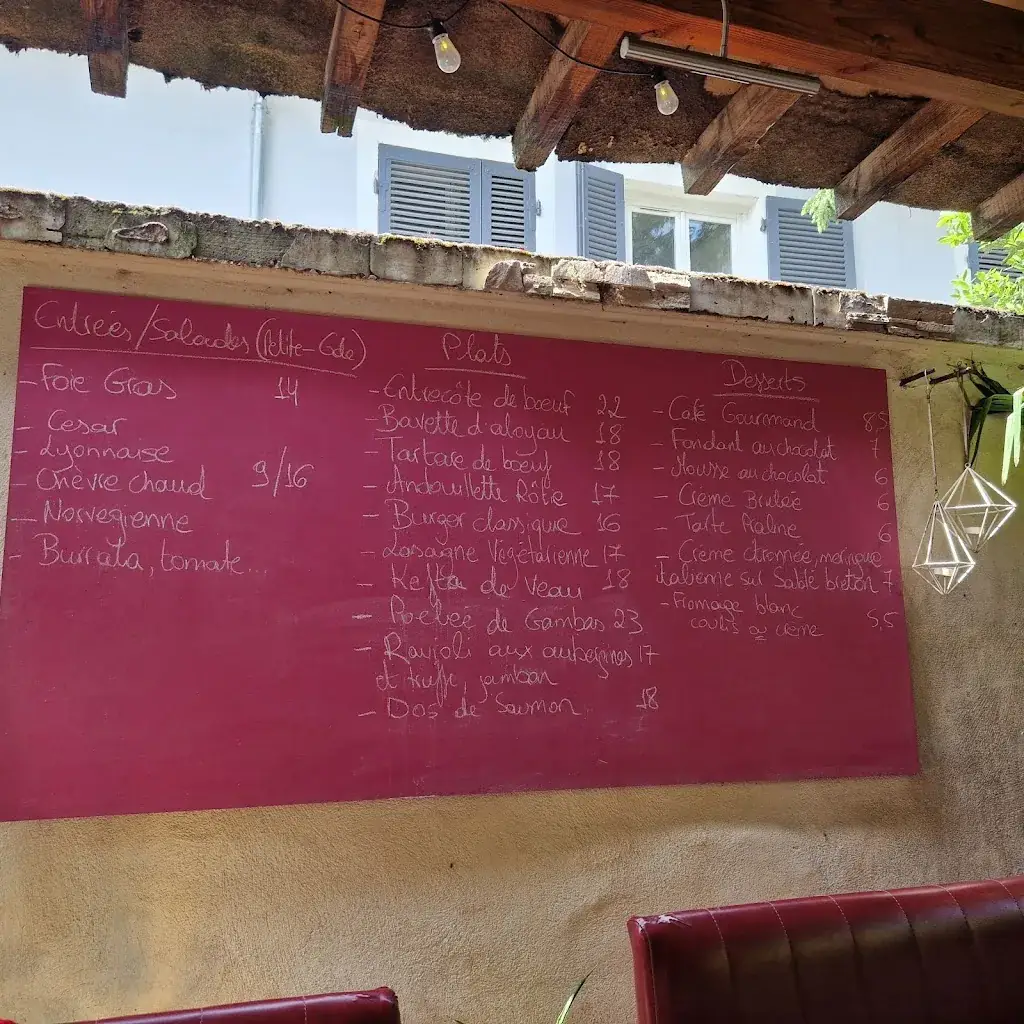 Entrées/Salades (Petite-Gde)
- Foie Gras 14
- Cesar
- Lyonnaise
- Chèvre chaud 9/16
- Norvegienne
- Burrata, tomate...
Plats
- Entrecôte de bœuf 22
- Bavette d'aloyau 18
- Tartare de bœuf 18
- Andouillette Rôtie 17
- Burger classique 16
- Lasagne Végétarienne 17
- Kefta de Veau 18
- Poelee de Gambas 23
- Ravioli aux aubergines 17
et truffe, jambon
- Dos de Saumon 18
Desserts
- Café Gourmand 8,5
- Fondant au chocolat 7
- Mousse au chocolat 6
- Crème Brulée 6
- Tarte Praline 6
- Crème citronnée, meringue
italienne sur Sablé breton 7
- Fromage blanc 5,5
coulis ou crème